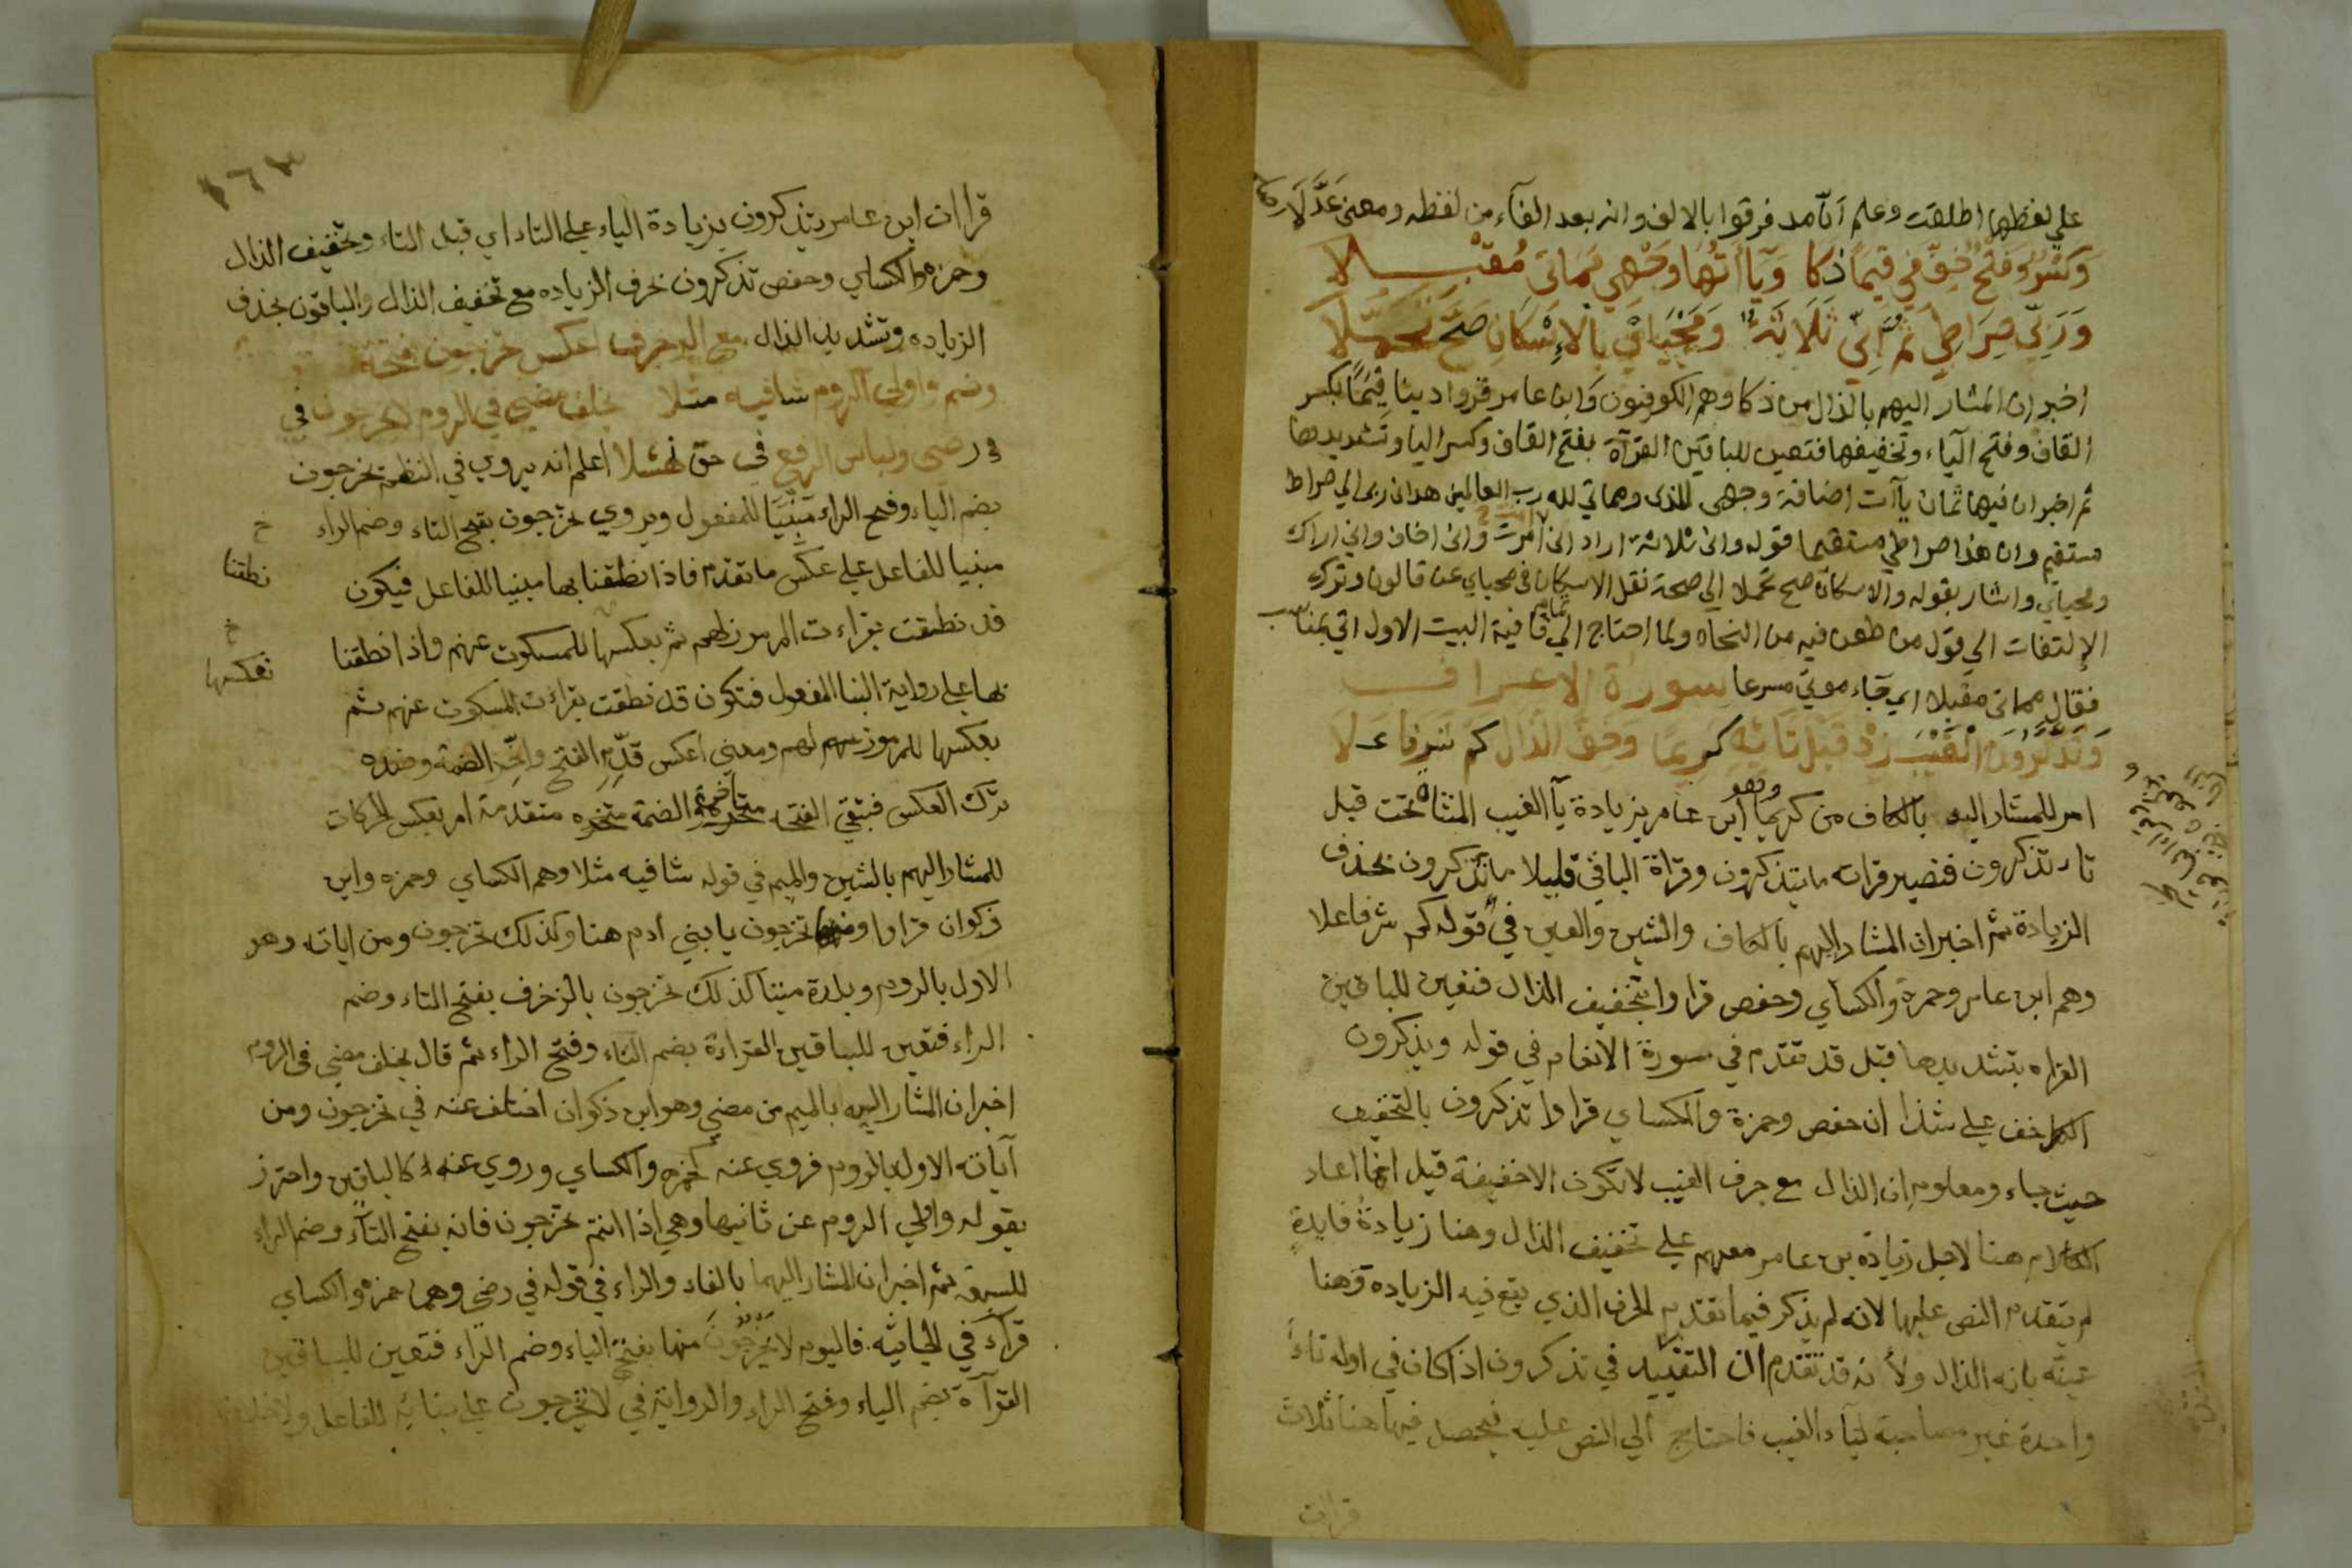 على لفظها اطلقت وعلم أنّ مد فرقوا بالالف وانه بعد الفآء من لفظه ومعنى عَدَّلَا
وَكَسْرٌ وَفَتْحٌ خِفَّ فِي قِيَمًا ذكا وَيَا أتُهَا وَجْهِي مَمَاتِيَ مُقْبِلا
وَرَبِّي صِرَاطِي ثُمَّ إِنِّي ثَلَاثَةٌ وَمَحْيَايَ بالْإِسْكَانِ صَحَّ تَحَمُّلَا
اخبر ان المشار اليهم بالذال من ذكا وهم الكوفيون وابن عامر قرؤا دينا قِيَمًا بكسر
القاف وفتح اليآء وتخفيفها فتعين للباقين القرآة بفتح القاف وكسر اليا وتشديدها
ثم اخبر ان فيها ثمان يآات اضافة وجهي للذى ومماتي لله رب العالمين هدانى ربى الي صراط
مستقيم وان هذا صراطي مستقيما قوله وانى ثلاثة اراد انى امرت وانى اخاف واني اراك
ومحياي واشار بقوله والاسكان صح تحملا الي صحة نقل الاسكان فى محياي عن قالون وترك
الإلتفات الي قول من طعن فيه من النحاه ولما احتاج الي تمام قافية البيت الاول اتي بمناسب
فقال مماتى مقبلا اي جاء موتي مسرعا سورة الاعراف
وَتَذَّكَّرُونَ الْغَيْبَ زِدْ قَبْلَ تَائِهِ كَرِيمًا وَخِفُّ الذَّالِ كَمْ شَرَفًا عَلَا
امر للمشار اليه بالكاف من كريما وهو ابن عامر بزيادة يآ الغيب المثناة تحت قبل
تاء تذكرون فتصير قراته ما يتذكرون وقراة الباقي قليلا ما تذكرون بحذف
الزيادة ثم اخبر ان المشار اليهم بالكاف والشين والعين في قوله كم شرفا علا
وهم ابن عامر وحمزة والكساي وحفص قراوا بتخفيف الذال فتعين للباقين
القراه بتشديدها قبل قد تقدم في سورة الانعام في قوله ويذكرون
الكل خف علي شذا ان حفص وحمزة والكساي قراوا تذكرون بالتخفيف
حيث جاء ومعلوم ان الذال مع حرف الغيب لا تكون الا خفيفة قيل انما اعاد
الكلام هنا لاجل زيادة بن عامر معهم علي تخفيف الذال وهنا زيادة فايدة
لم يتقدم النص عليها لانه لم يذكر فيما تقدم الحرف الذي يقع فيه الزيادة وهنا
عينه بانه الذال ولأنه قد تقدم ان التقييد في تذكرون اذا كان في اوله تاء
واحدة غير مصاحبة ليآء الغيب فاحتاج الي النص عليه فيحصل فيها هنا ثلاث
قرات
١٦٣
قراات ابن عامر يتذكرون بزيادة الياء علي التاء اي قبل التاء وتخفيف الذال
وحمزه والكساي وحفص تذكرون بحرف الزياده مع تخفيف الذال والباقون بحذف
الزياده وتشديد الذال مع الزخرف اعكس تخرجون بفتحة
وضم واولي الروم شافيه مثلا بخلف مضي في الروم لا يخرجون في
في رضى ولباس الرفع في حق نهشلا اعلم انه يروي في النظم تخرجون
بضم الياء وفتح الراء مبنيًا للمفعول ويروي تخرجون بفتح التاء وضم الراء
مبنيا للفاعل علي عكس ما تقدم فاذا نطقنا بها مبنيا للفاعل فيكون
قد نطقت بقراءت المرموز لهم ثم بعكسها للمسكوت عنهم واذا نطقنا
بها علي رواية البنا المفعول فتكون قد نطقت بقراءت المسكوت عنهم ثم
بعكسها للمرموز لهم ومعني اعكس قدِّم الفتح واخِّر الضمة وضده
ترك العكس فتبقي الفتحة متأخرة الضمة متقدمة امر بعكس الحركات
للمشار اليهم بالشين والميم في قوله شافيه مثلا وهم الكساي وحمزه وابن
ذكوان قراوا ومنها تخرجون يا بني ادم هنا وكذلك تخرجون ومن اياته وهو
الاول بالروم وبلدة ميتا كذلك تخرجون بالزخرف بفتح التاء وضم
الراء فتعين للباقين القراءة بضم التاء وفتح الراء ثم قال بخلف مضى فى الروم
اخبر ان المشار اليه بالميم من مضي وهو ابن ذكوان اختلف عنه في تخرجون ومن
آياته الاول بالروم فروي عنه كحمزه والكساي وروي عنه كالباقين واحترز
بقوله واولي الروم عن ثانيها وهي اذا انتم تخرجون فانه بفتح التآء وضم الراء
للسبعة ثم اخبر ان المشار اليهما بالفاء والراء في قوله في رضى وهما حمزه والكساي
قرآء في الجاثيه فاليوم لا يَخْرُجُونَ منها بفتح الياء وضم الراء فتعين للباقين
القرآة بضم الياء وفتح الراء والرواية في لا يخرجون علي بنائه للفاعل ولا خلاف
خ
نطقنا
خ
تعكسها